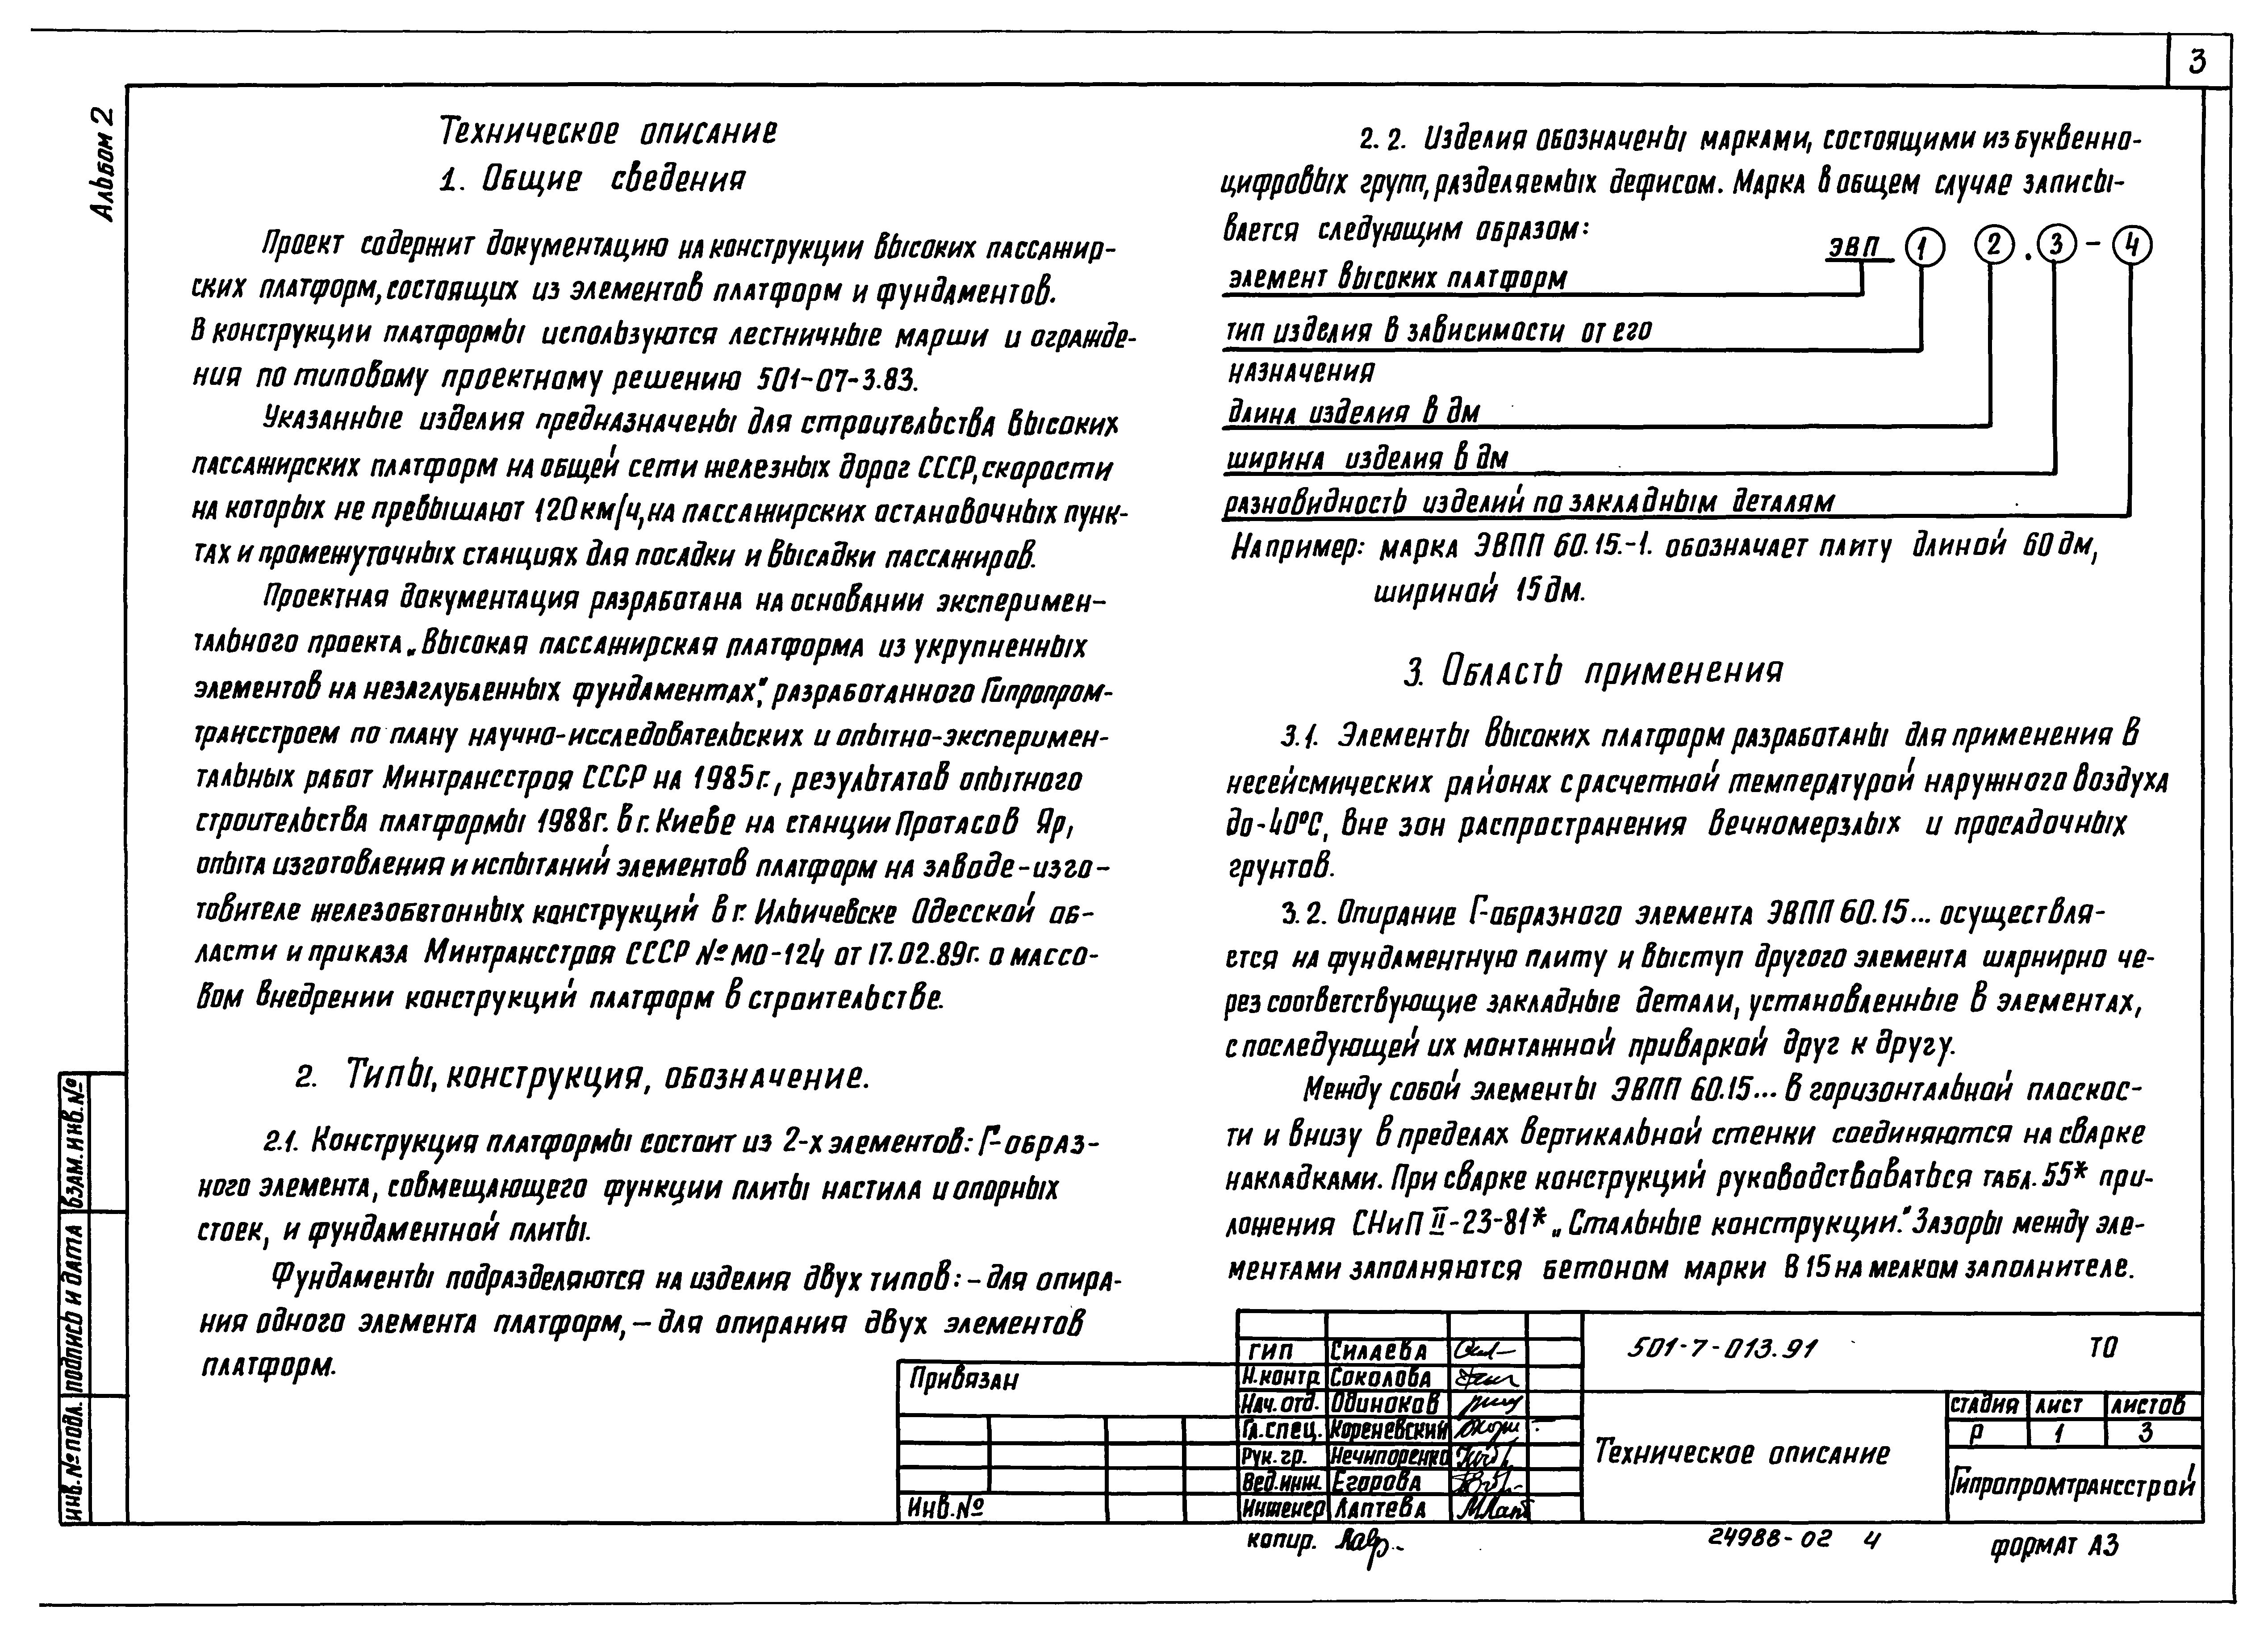 3
Альбом 2
Техническое описание
1. Общие сведения
Проект содержит документацию на конструкции высоких пассажир-
ских платформ, состоящих из элементов платформ и фундаментов.
В конструкции платформы используются лестничные марши и огражде-
ния по типовому проектному решению 501-07-3.83.
Указанные изделия предназначены для строительства высоких
пассажирских платформ на общей сети железных дорог СССР, скорости
на которых не превышают 120 км/ч, на пассажирских остановочных пунк-
тах и промежуточных станциях для посадки и высадки пассажиров.
Проектная документация разработана на основании эксперимен-
тального проекта „Высокая пассажирская платформа из укрупненных
элементов на незаглубленных фундаментах", разработанного Гипропром-
трансстроем по плану научно-исследовательских и опытно-эксперимен-
тальных работ Минтрансстроя СССР на 1985г., результатов опытного
строительства платформы 1988г. в г. Киеве на станции Протасов Яр,
опыта изготовления и испытаний элементов платформ на заводе-изго-
товителе железобетонных конструкций в г. Ильичевске Одесской об-
ласти и приказа Минтрансстроя СССР № МО-124 от 17.02.89г. о массо-
вом внедрении конструкций платформ в строительстве.
2. Типы, конструкция, обозначение.
2.1. Конструкция платформы состоит из 2-х элементов: Г-образ-
ного элемента, совмещающего функции плиты настила и опорных
стоек, и фундаментной плиты.
Фундаменты подразделяются на изделия двух типов: - для опира-
ния одного элемента платформ, - для опирания двух элементов
платформ.
2.2. Изделия обозначены марками, состоящими из буквенно-
цифровых групп, разделяемых дефисом. Марка в общем случае записы-
вается следующим образом:
ЭВП 1 2 . 3 - 4
элемент высоких платформ
тип изделия в зависимости от его
назначения
длина изделия в дм
ширина изделия в дм
разновидность изделий по закладным деталям
Например: марка ЭВПП 60.15.-1. обозначает плиту длиной 60 дм,
шириной 15 дм.
3. Область применения
3.1. Элементы высоких платформ разработаны для применения в
несейсмических районах с расчетной температурой наружного воздуха
до -40°С, вне зон распространения вечномерзлых и просадочных
грунтов.
3.2. Опирание Г-образного элемента ЭВПП 60.15... осуществля-
ется на фундаментную плиту и выступ другого элемента шарнирно че-
рез соответствующие закладные детали, установленные в элементах,
с последующей их монтажной приваркой друг к другу.
Между собой элементы ЭВПП 60.15... в горизонтальной плоскос-
ти и внизу в пределах вертикальной стенки соединяются на сварке
накладками. При сварке конструкций руководствоваться табл. 55* при-
ложения СНиП II-23-81* „Стальные конструкции." Зазоры между эле-
ментами заполняются бетоном марки В 15 на мелком заполнителе.
взам. инв. №
подпись и дата
инв. № подл.
Привязан
Инв. №
ГИП Силаева
Н.контр Соколова
Нач. отд. Одиноков
Гл. спец. Кореневский
Рук. гр. Нечипоренко
Вед. инж. Егорова
Инженер Лаптева
501-7-013.91 ТО
Техническое описание
стадия лист листов
Р 1 3
Гипропромтрансстрой
копир.
24988-02 4
формат А3